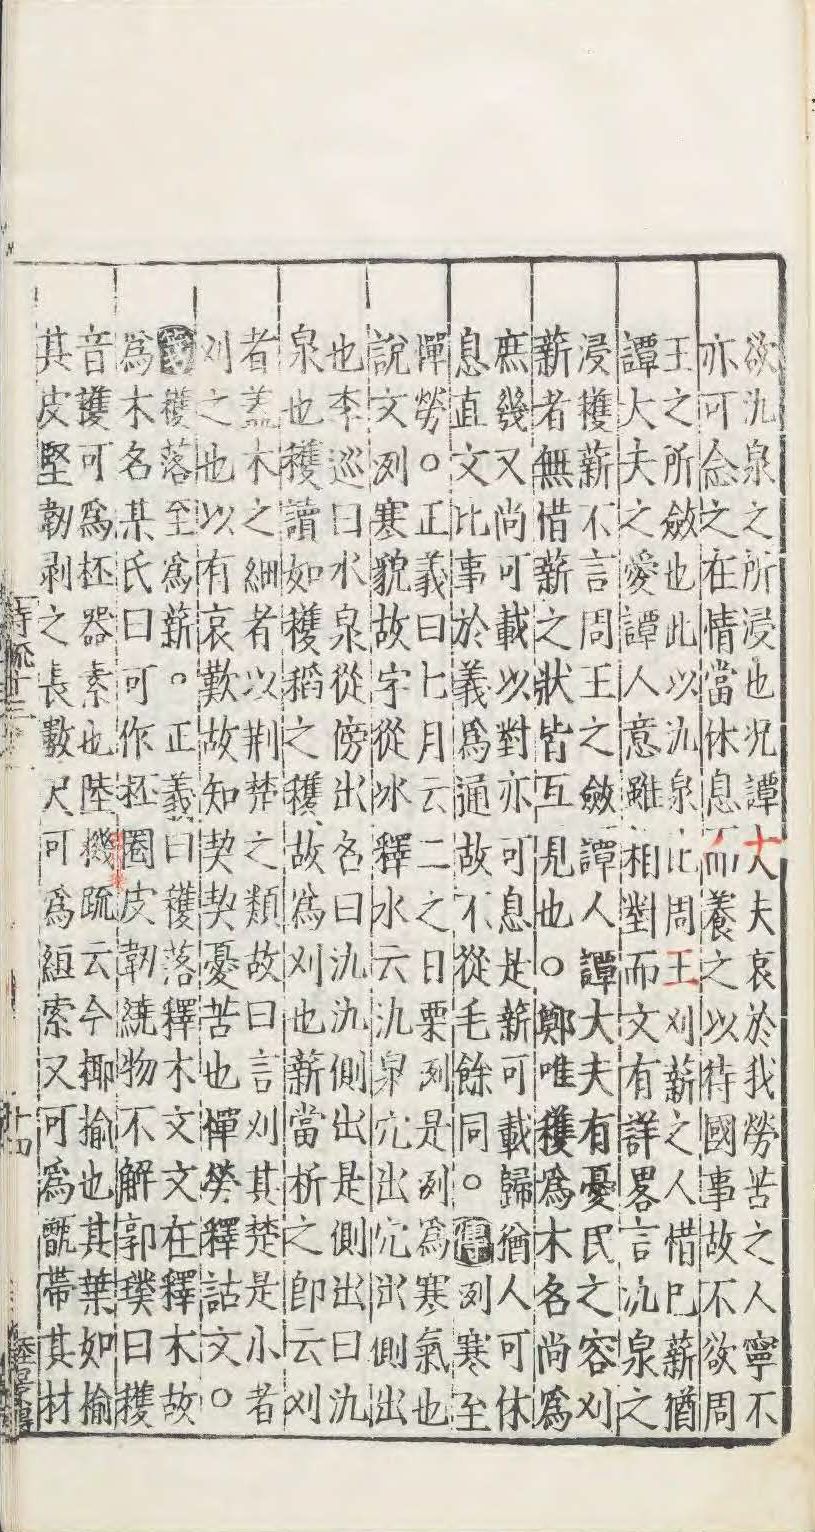 欲氿泉之所浸也况譚大夫哀於我勞苦之人寧不
亦可念之在情當休息而養之以待國事故不欲周
王之所斂也此以氿泉比周王刈薪之人惜巳薪猶
譚大夫之愛譚人意雖相對而文有詳畧言氿泉之
浸穫薪不言周王之斂譚人譚大夫有憂民之容刈
薪者無惜薪之狀皆互見也○鄭唯穫為木名尚為
庶幾又尚可載以對亦可息是薪可載歸猶人可休
息直文比事於義為通故不從毛餘同○傳冽寒至
憚勞○正義曰七月云二之日栗冽是冽為寒氣也
說文冽寒貌故字從冰釋水云氿泉穴出穴出側出
也李巡曰水泉從傍出名曰氿氿側出是側出曰氿
泉也穫讀如穫稻之穫故為刈也薪當析之即云刈
者蓋木之細者以荆楚之類故曰言刈其楚是小者
刈之也以有哀歎故知契契憂苦也憚勞釋詁文○
箋穫落至為薪○正義曰穫落釋木文文在釋木故
為木名某氏曰可作杯圈皮韌繞物不解郭璞曰穫
音護可為杯器素也陸機疏云今椰揄也其葉如榆
其皮堅韌剥之長數尺可為絙索又可為甑帶其材
詩疏十三
十四